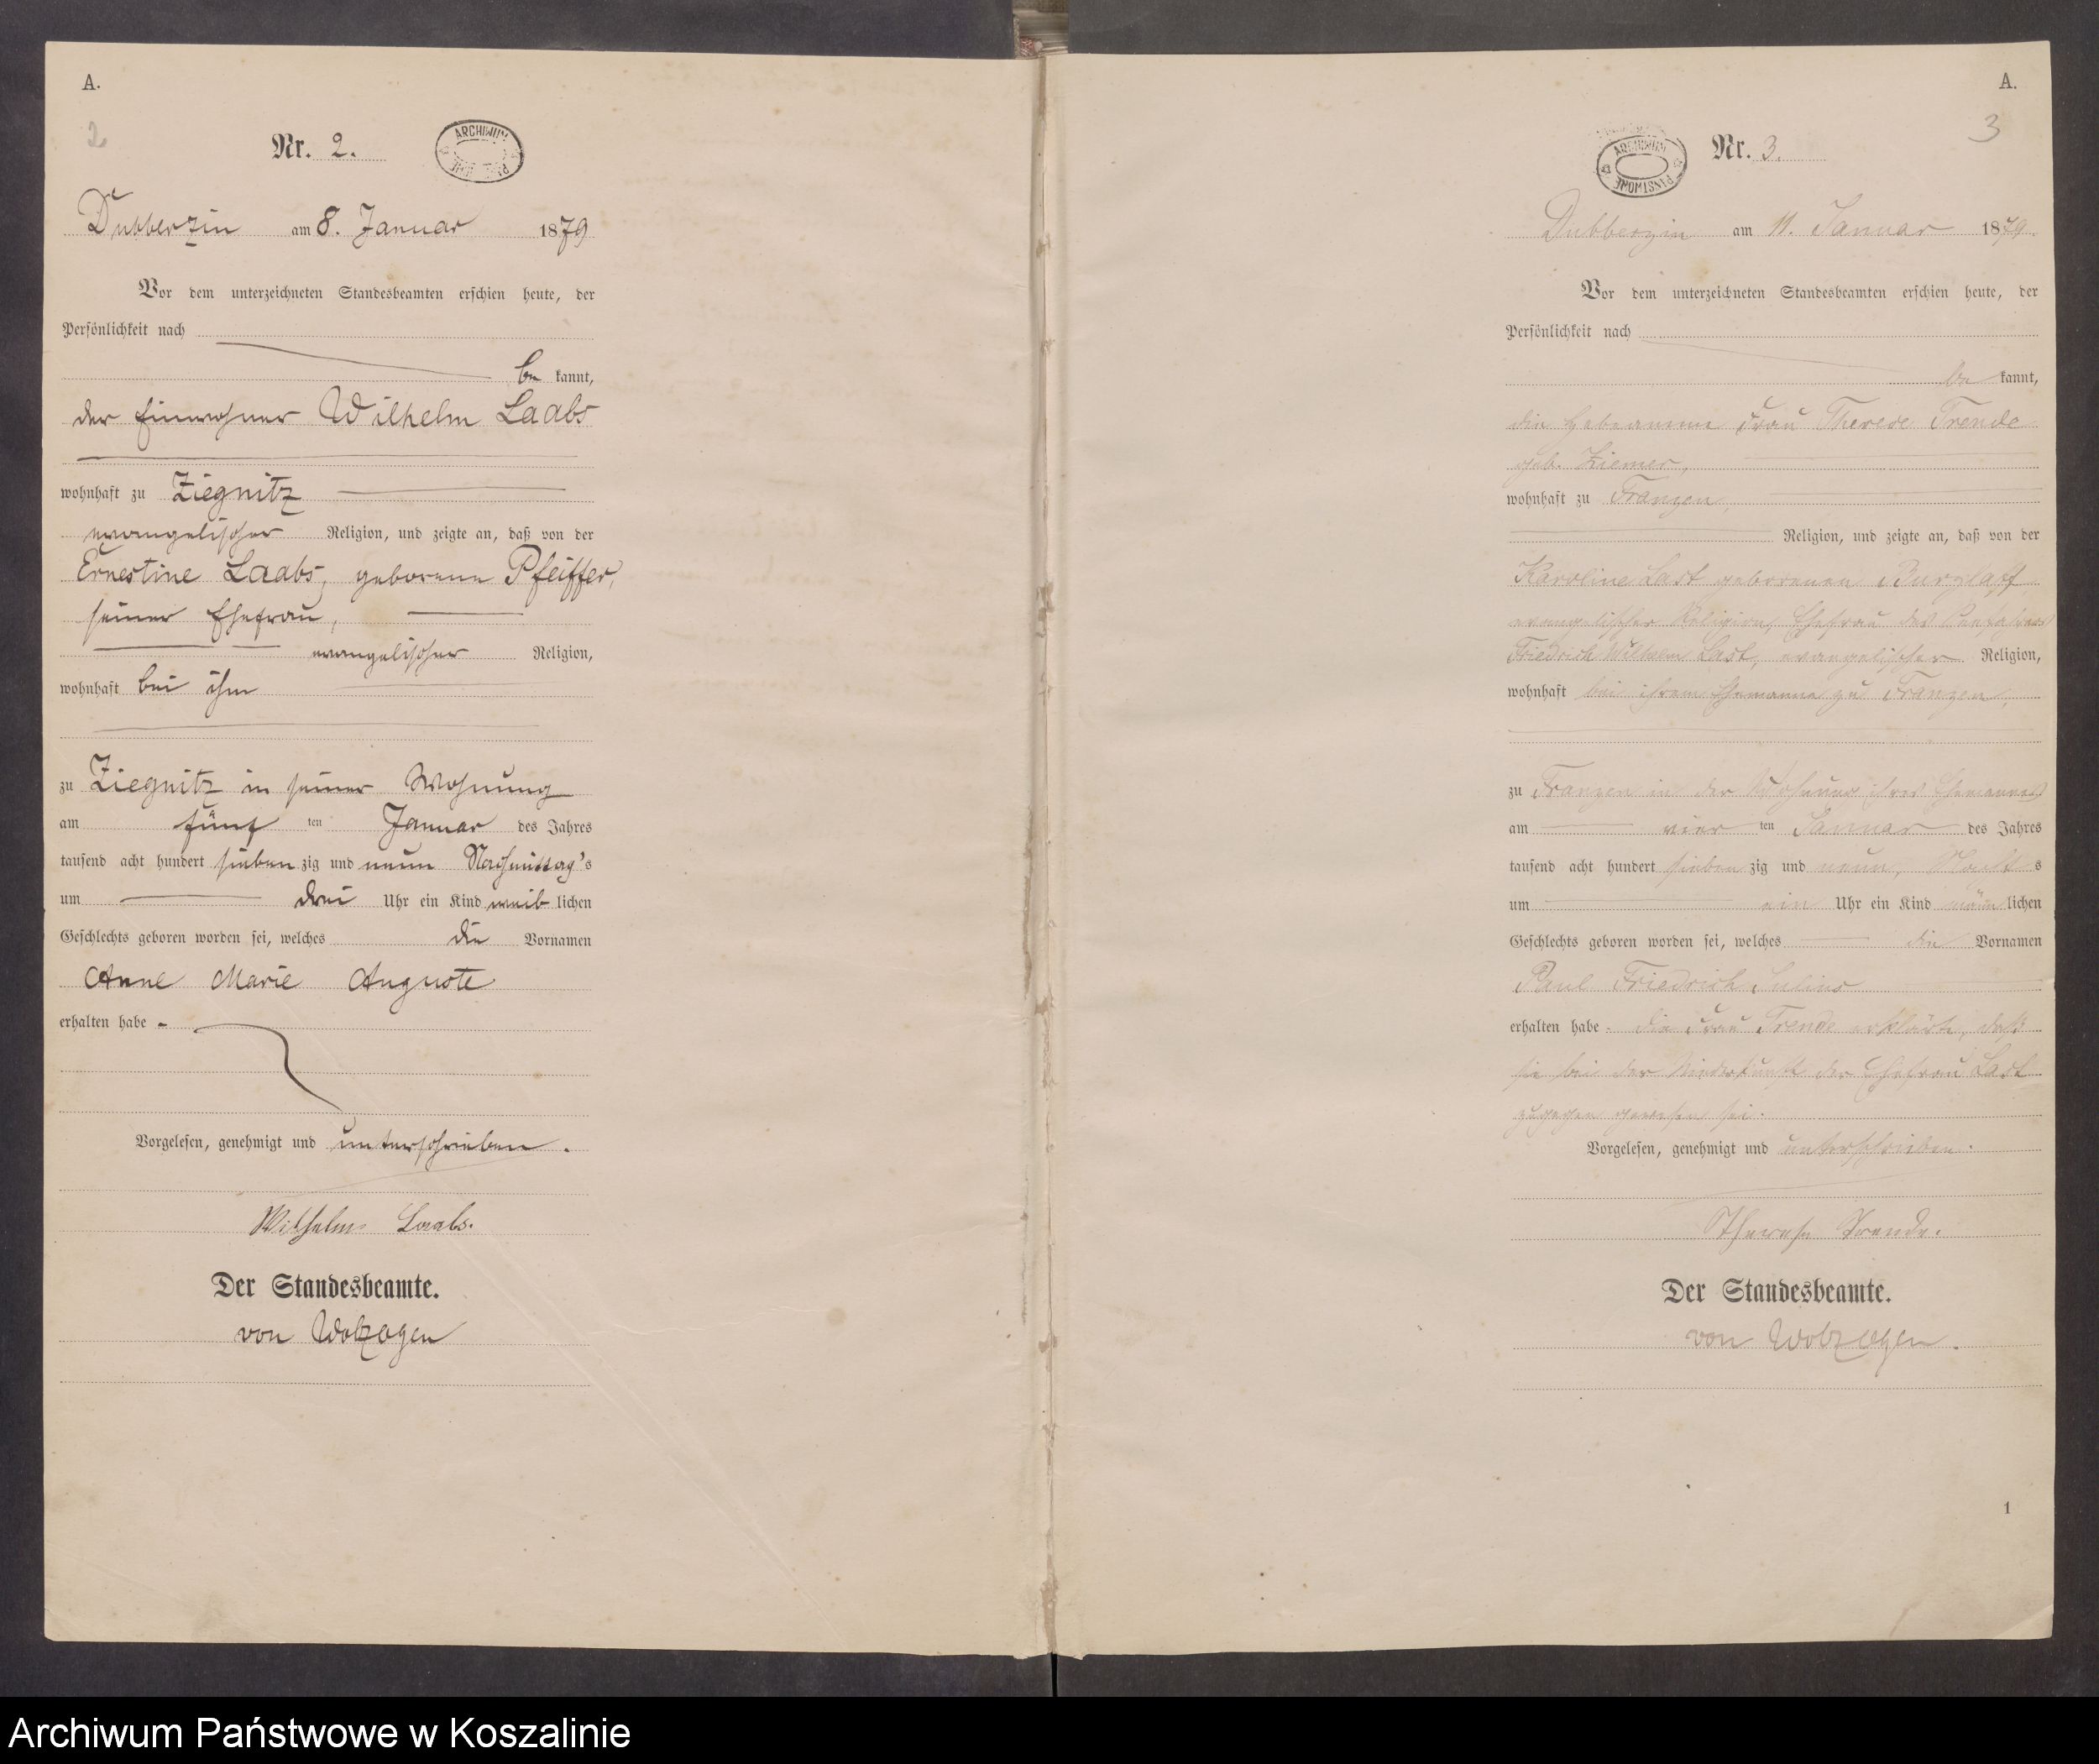 A.
2
Nr. 2.
ARCHIWUM
Dubberzin am 8. Januar 1879
Vor dem unterzeichneten Standesbeamten erschien heute, der
Persönlichkeit nach
be kannt,
der Einwohner Wilhelm Laabs
wohnhaft zu Ziegnitz
evangelischer Religion, und zeigte an, daß von der
Ernestine Laabs, geborene Pfeiffer,
seiner Ehefrau,
evangelischer Religion,
wohnhaft bei ihm
zu Ziegnitz in seiner Wohnung
am fünf ten Januar des Jahres
tausend acht hundert sieben zig und neun Nachmittag's
um drei Uhr ein Kind weib lichen
Geschlechts geboren worden sei, welches die Vornamen
Anne Marie Auguste
erhalten habe.
Vorgelesen, genehmigt und unterschrieben.
Wilhelm Laabs.
Der Standesbeamte.
von Wolzogen
A.
3
Nr. 3.
ARCHIWUM PAŃSTWOWE
Dubberzin am 11. Januar 1879.
Vor dem unterzeichneten Standesbeamten erschien heute, der
Persönlichkeit nach
be kannt,
die Hebeamme Frau Therese Trende
geb. Ziemer,
wohnhaft zu Franzen,
Religion, und zeigte an, daß von der
Karoline Last geborenen Burzlaff
evangelischer Religion, Ehefrau des
Friedrich Wilhelm Last, evangelischer Religion,
wohnhaft bei ihrem Ehemanne zu Franzen,
zu Franzen in der Wohnung ihres Ehemannes
am vier ten Januar des Jahres
tausend acht hundert sieben zig und neun, Nacht s
um ein Uhr ein Kind männ lichen
Geschlechts geboren worden sei, welches die Vornamen
Paul Friedrich Julius
erhalten habe. Die Frau Trende erklärte, daß
sie bei der Niederkunft der Ehefrau Last
zugegen gewesen sei.
Vorgelesen, genehmigt und unterschrieben.
Therese Trende.
Der Standesbeamte.
von Wolzogen.
1
Archiwum Państwowe w Koszalinie